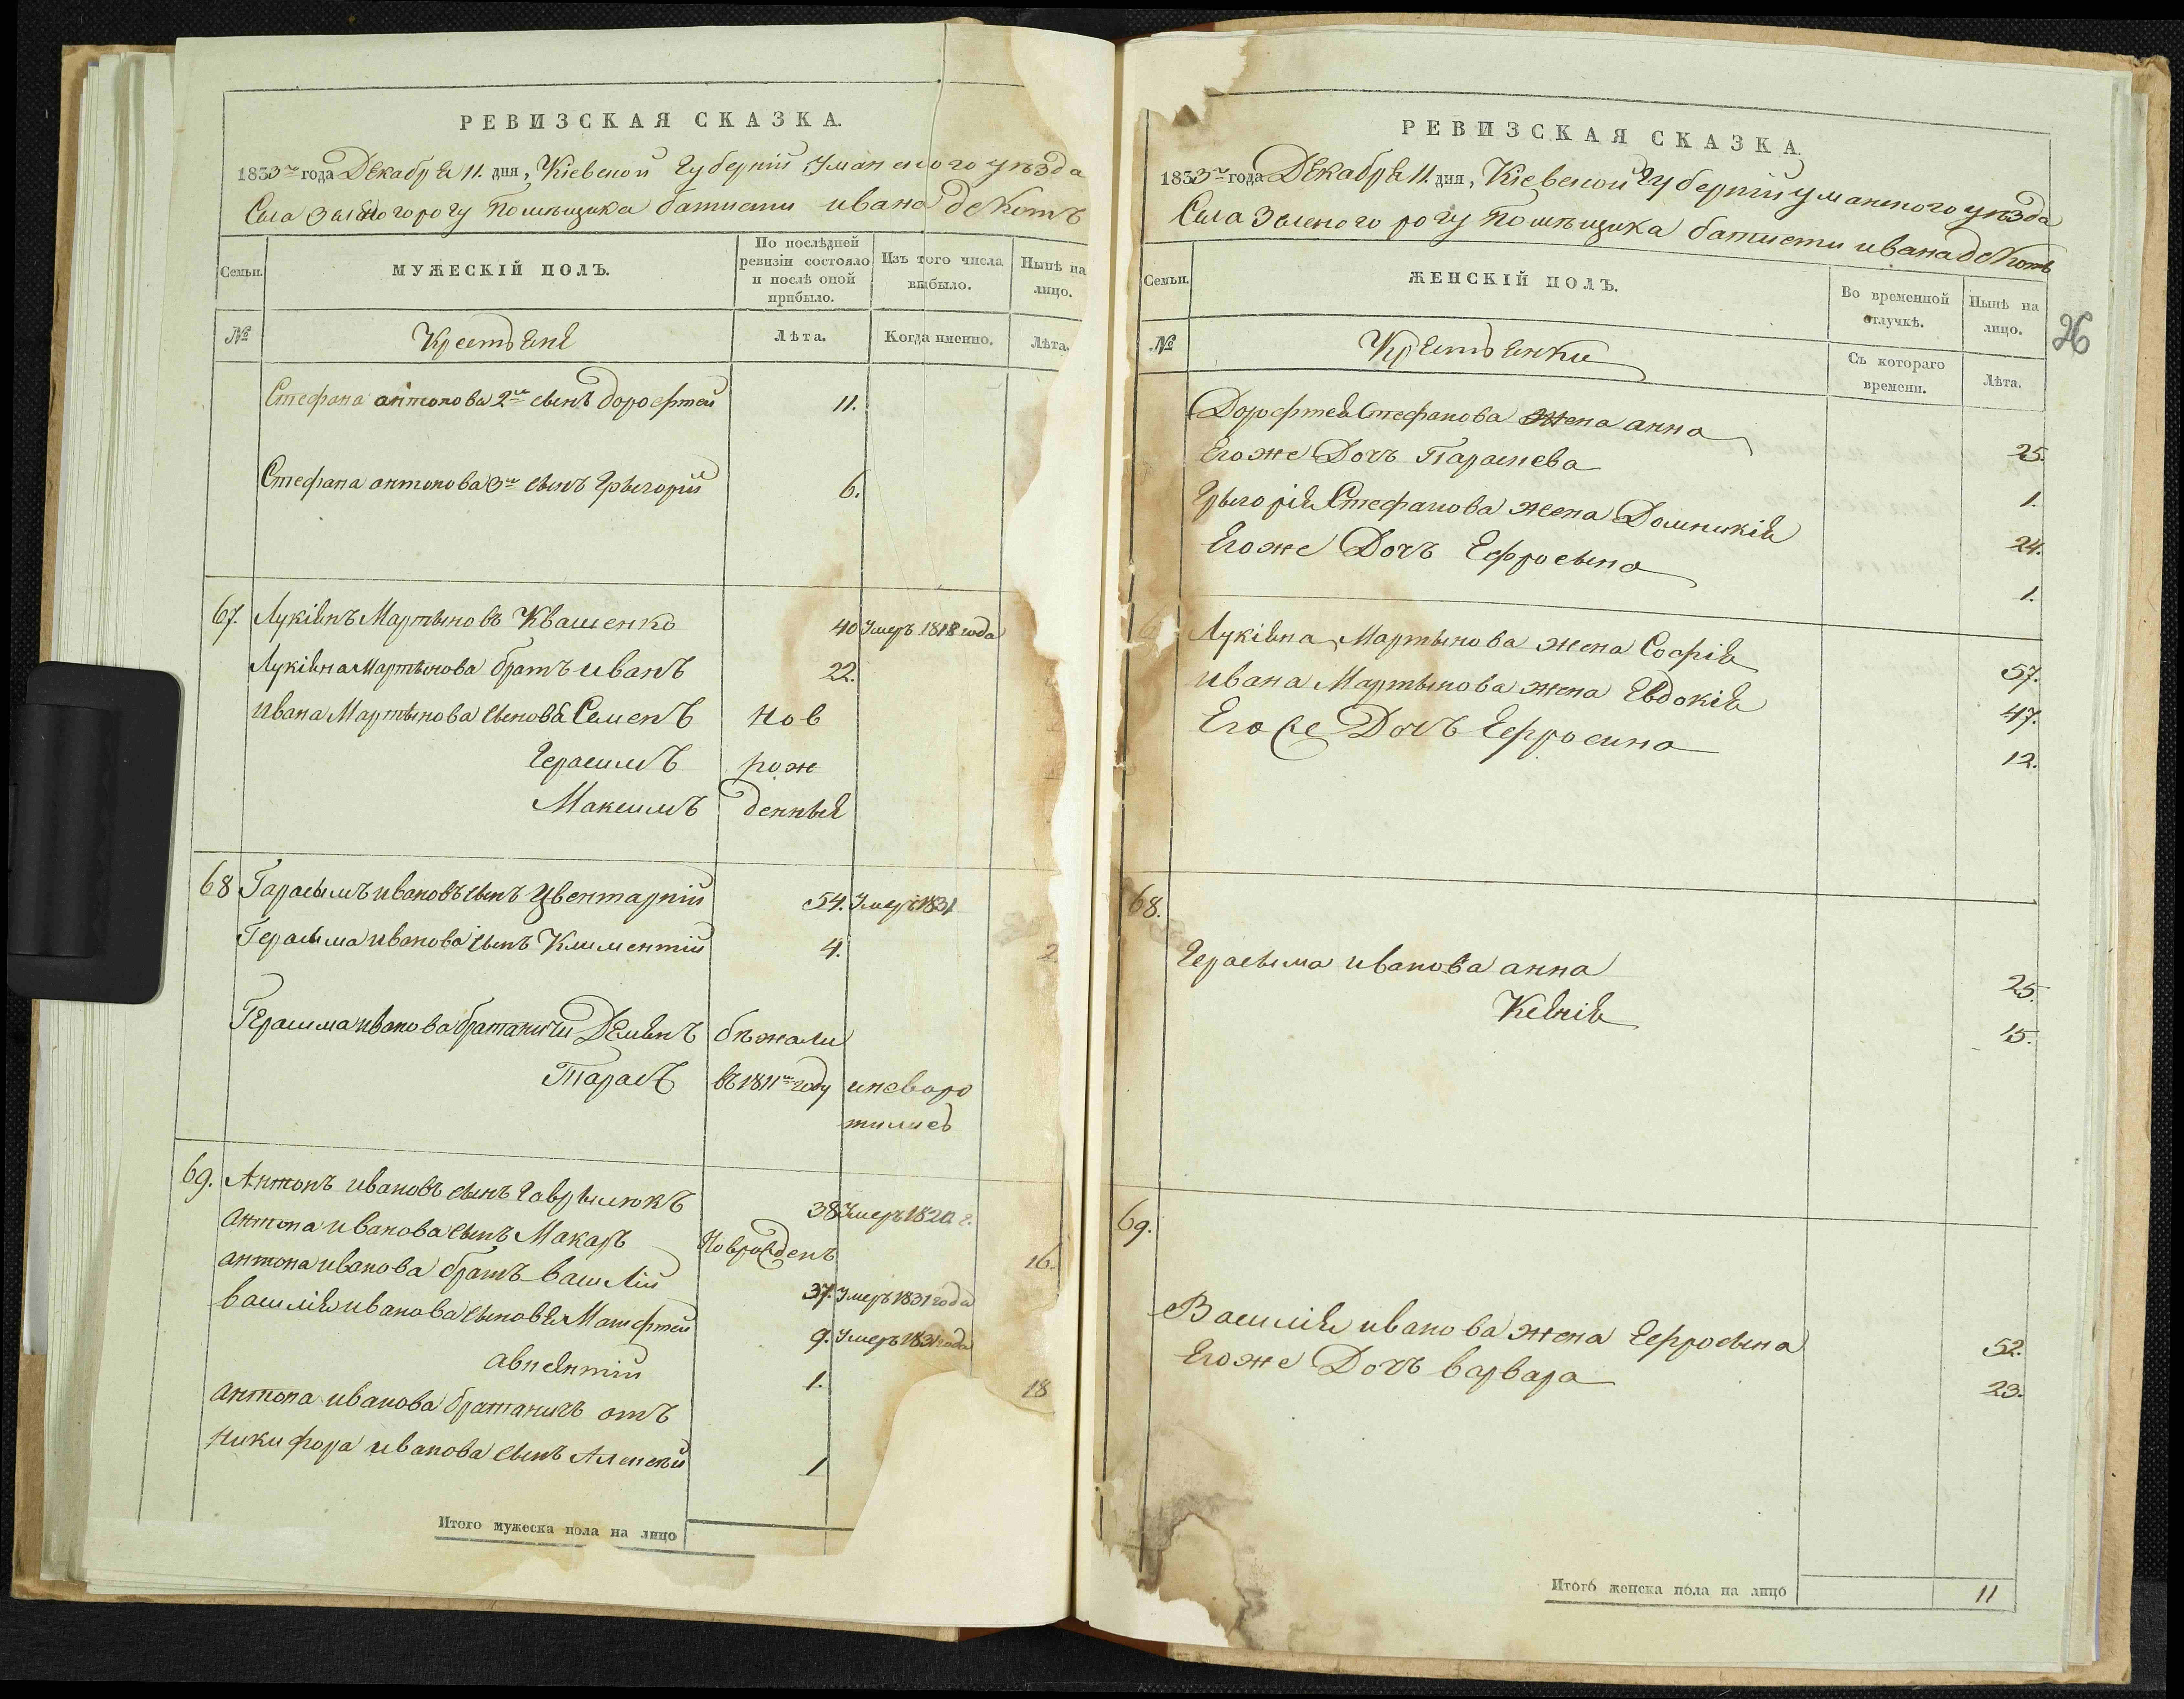 РЕВИЗСКАЯ СКАЗКА.
1833го года Декабря 11. дня, Кіевской Губерніи Уманского уѣзда
Села Зеленого рогу помѣщика батисти ивана
Семьи.
МУЖЕСКІЙ ПОЛЪ.
По послѣдней ревизіи состояло и послѣ оной прибыло.
Изъ того числа выбыло.
Нынѣ на лицо.
№
Крестьяне
Лѣта.
Когда именно.
Лѣта.
Стефана антонова 2й сынъ дорофтей 11.
Стефана антонова 3й сынъ Грыгорій 6.
67. Лукіянъ Мартыновъ Квашенко 40 Умеръ 1818 года
Лукіяна Мартынова братъ иванъ 22.
ивана Мартынова сыновя Семенъ Нов
Герасимъ рож
Максимъ денныя
68 Гарасымъ ивановъ сынъ Цвентарній 54. Умеръ 1831
Герасыма иванова сынъ Климентій 4. 2
Герасима иванова братаничи Демянъ бѣжали
Тарасъ въ 1811м году и неворо
тились
69. Антонъ ивановъ сынъ Гаврылюкъ 38 Умеръ 1820 г.
антона иванова сынъ Макаръ Новрожденъ 16.
антона иванова братъ василій 37. Умеръ 1831 года
василія иванова сыновя Матфтей 9. Умеръ 1831 года
авксентій 1. 18
антона иванова братаничъ отъ
Никифора иванова сынъ Алексѣй 1
Итого мужеска пола на лицо
РЕВИЗСКАЯ СКАЗКА.
1833го года Декабря 11. дня, Кіевской Губерніи уманского уѣзда
Села Зеленого рогу помѣщика батисти ивана
26
Семьи.
ЖЕНСКІЙ ПОЛЪ.
Во временной отлучкѣ.
Нынѣ на лицо.
№
Крестьянки
Съ котораго времени.
Лѣта.
Дорофтея Стефанова жена анна 25.
Егоже Дочъ Параскева 1.
Грыгорія Стефанова жена Домникія 24.
Егоже Дочъ Ефросына 1.
Лукіяна Мартынова жена Софія 57.
ивана Мартынова жена Евдокія 47.
Егоже Дочъ Ефросина 12.
68.
Герасыма иванова анна 25.
Ксенія 15.
69.
Василія иванова жена Ефросына 52.
Егоже Дочъ варвара 23.
Итого женска пола на лицо 11